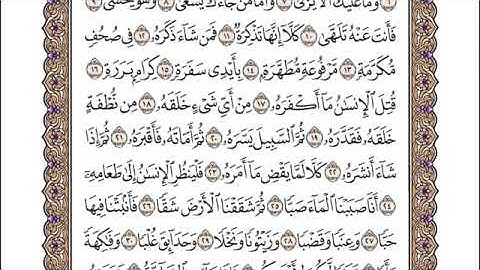 ٦ وَمَا عَلَيْكَ أَلَّا يَزَّكَّىٰ ٧ وَأَمَّا مَن جَآءَكَ يَسْعَىٰ ٨ وَهُوَ يَخْشَىٰ ٩
فَأَنتَ عَنْهُ تَلَهَّىٰ ١٠ كَلَّآ إِنَّهَا تَذْكِرَةٌ ١١ فَمَن شَآءَ ذَكَرَهُۥ ١٢ فِى صُحُفٍ
مُّكَرَّمَةٍ ١٣ مَّرْفُوعَةٍ مُّطَهَّرَةٍۭ ١٤ بِأَيْدِى سَفَرَةٍ ١٥ كِرَامٍۭ بَرَرَةٍ ١٦
قُتِلَ ٱلْإِنسَٰنُ مَآ أَكْفَرَهُۥ ١٧ مِنْ أَىِّ شَىْءٍ خَلَقَهُۥ ١٨ مِن نُّطْفَةٍ
خَلَقَهُۥ فَقَدَّرَهُۥ ١٩ ثُمَّ ٱلسَّبِيلَ يَسَّرَهُۥ ٢٠ ثُمَّ أَمَاتَهُۥ فَأَقْبَرَهُۥ ٢١ ثُمَّ إِذَا
شَآءَ أَنشَرَهُۥ ٢٢ كَلَّا لَمَّا يَقْضِ مَآ أَمَرَهُۥ ٢٣ فَلْيَنظُرِ ٱلْإِنسَٰنُ إِلَىٰ طَعَامِهِۦٓ
٢٤ أَنَّا صَبَبْنَا ٱلْمَآءَ صَبًّا ٢٥ ثُمَّ شَقَقْنَا ٱلْأَرْضَ شَقًّا ٢٦ فَأَنۢبَتْنَا فِيهَا
حَبًّا ٢٧ وَعِنَبًا وَقَضْبًا ٢٨ وَزَيْتُونًا وَنَخْلًا ٢٩ وَحَدَآئِقَ غُلْبًا ٣٠ وَفَٰكِهَةً